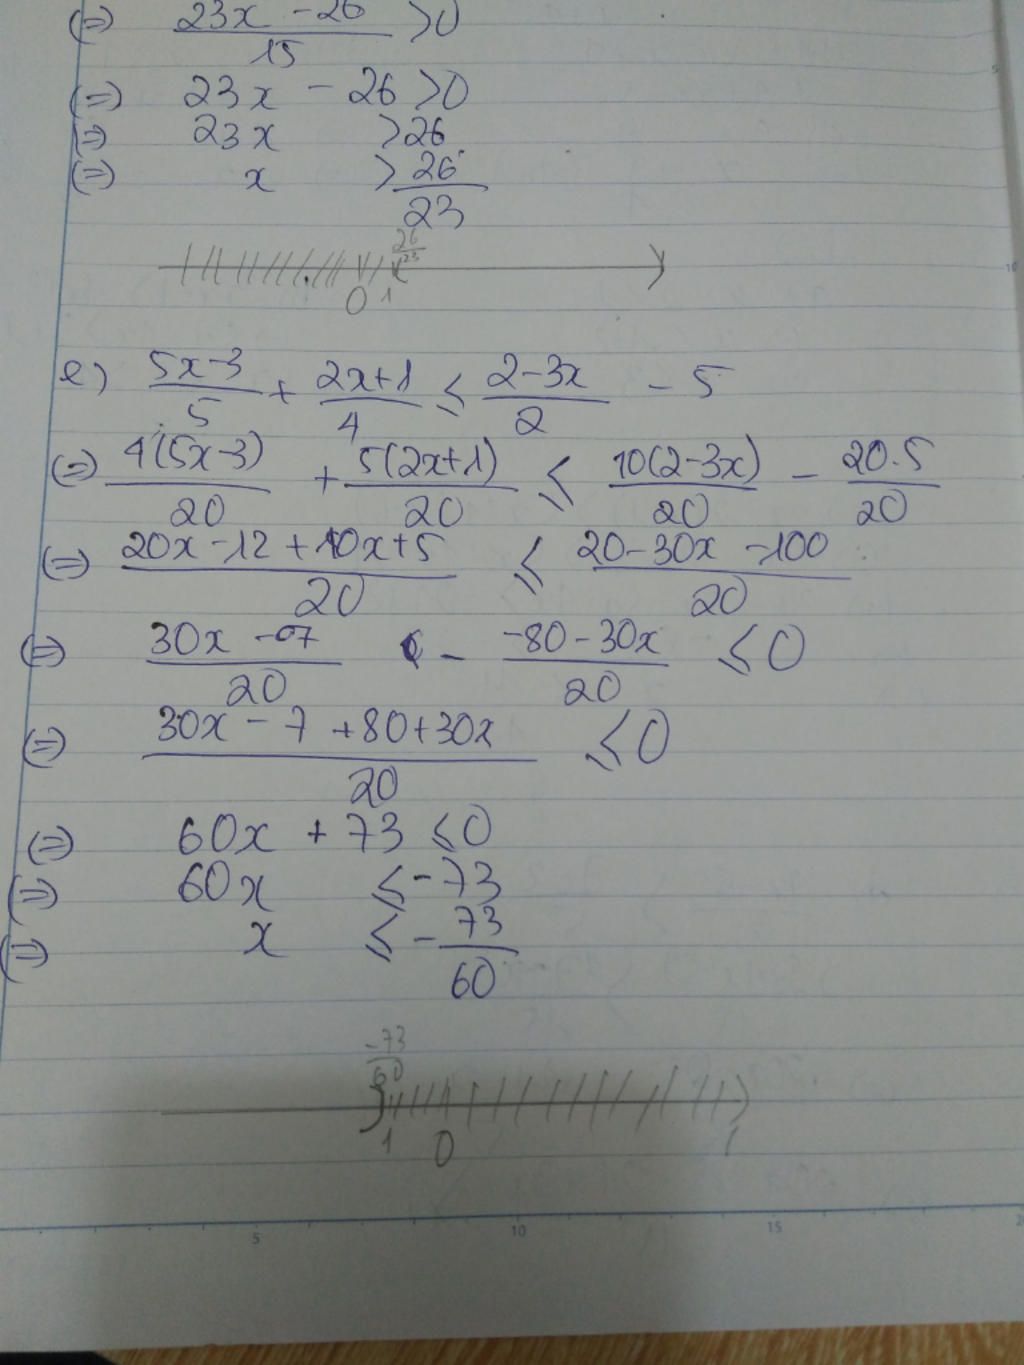 (=) 23x - 26 / 15 > 0
(=) 23x - 26 > 0
(=) 23x > 26
(=) x > 26/23
26/23
0 1
e) 5x-3/5 + 2x+1/4 ≤ 2-3x/2 - 5
(=) 4(5x-3)/20 + 5(2x+1)/20 ≤ 10(2-3x)/20 - 20.5/20
(=) 20x-12+10x+5/20 ≤ 20-30x-100/20
(=) 30x-7/20 - -80-30x/20 ≤ 0
(=) 30x-7+80+30x/20 ≤ 0
(=) 60x + 73 ≤ 0
(=) 60x ≤ -73
(=) x ≤ -73/60
-73/60
1 0 1
5 10 15